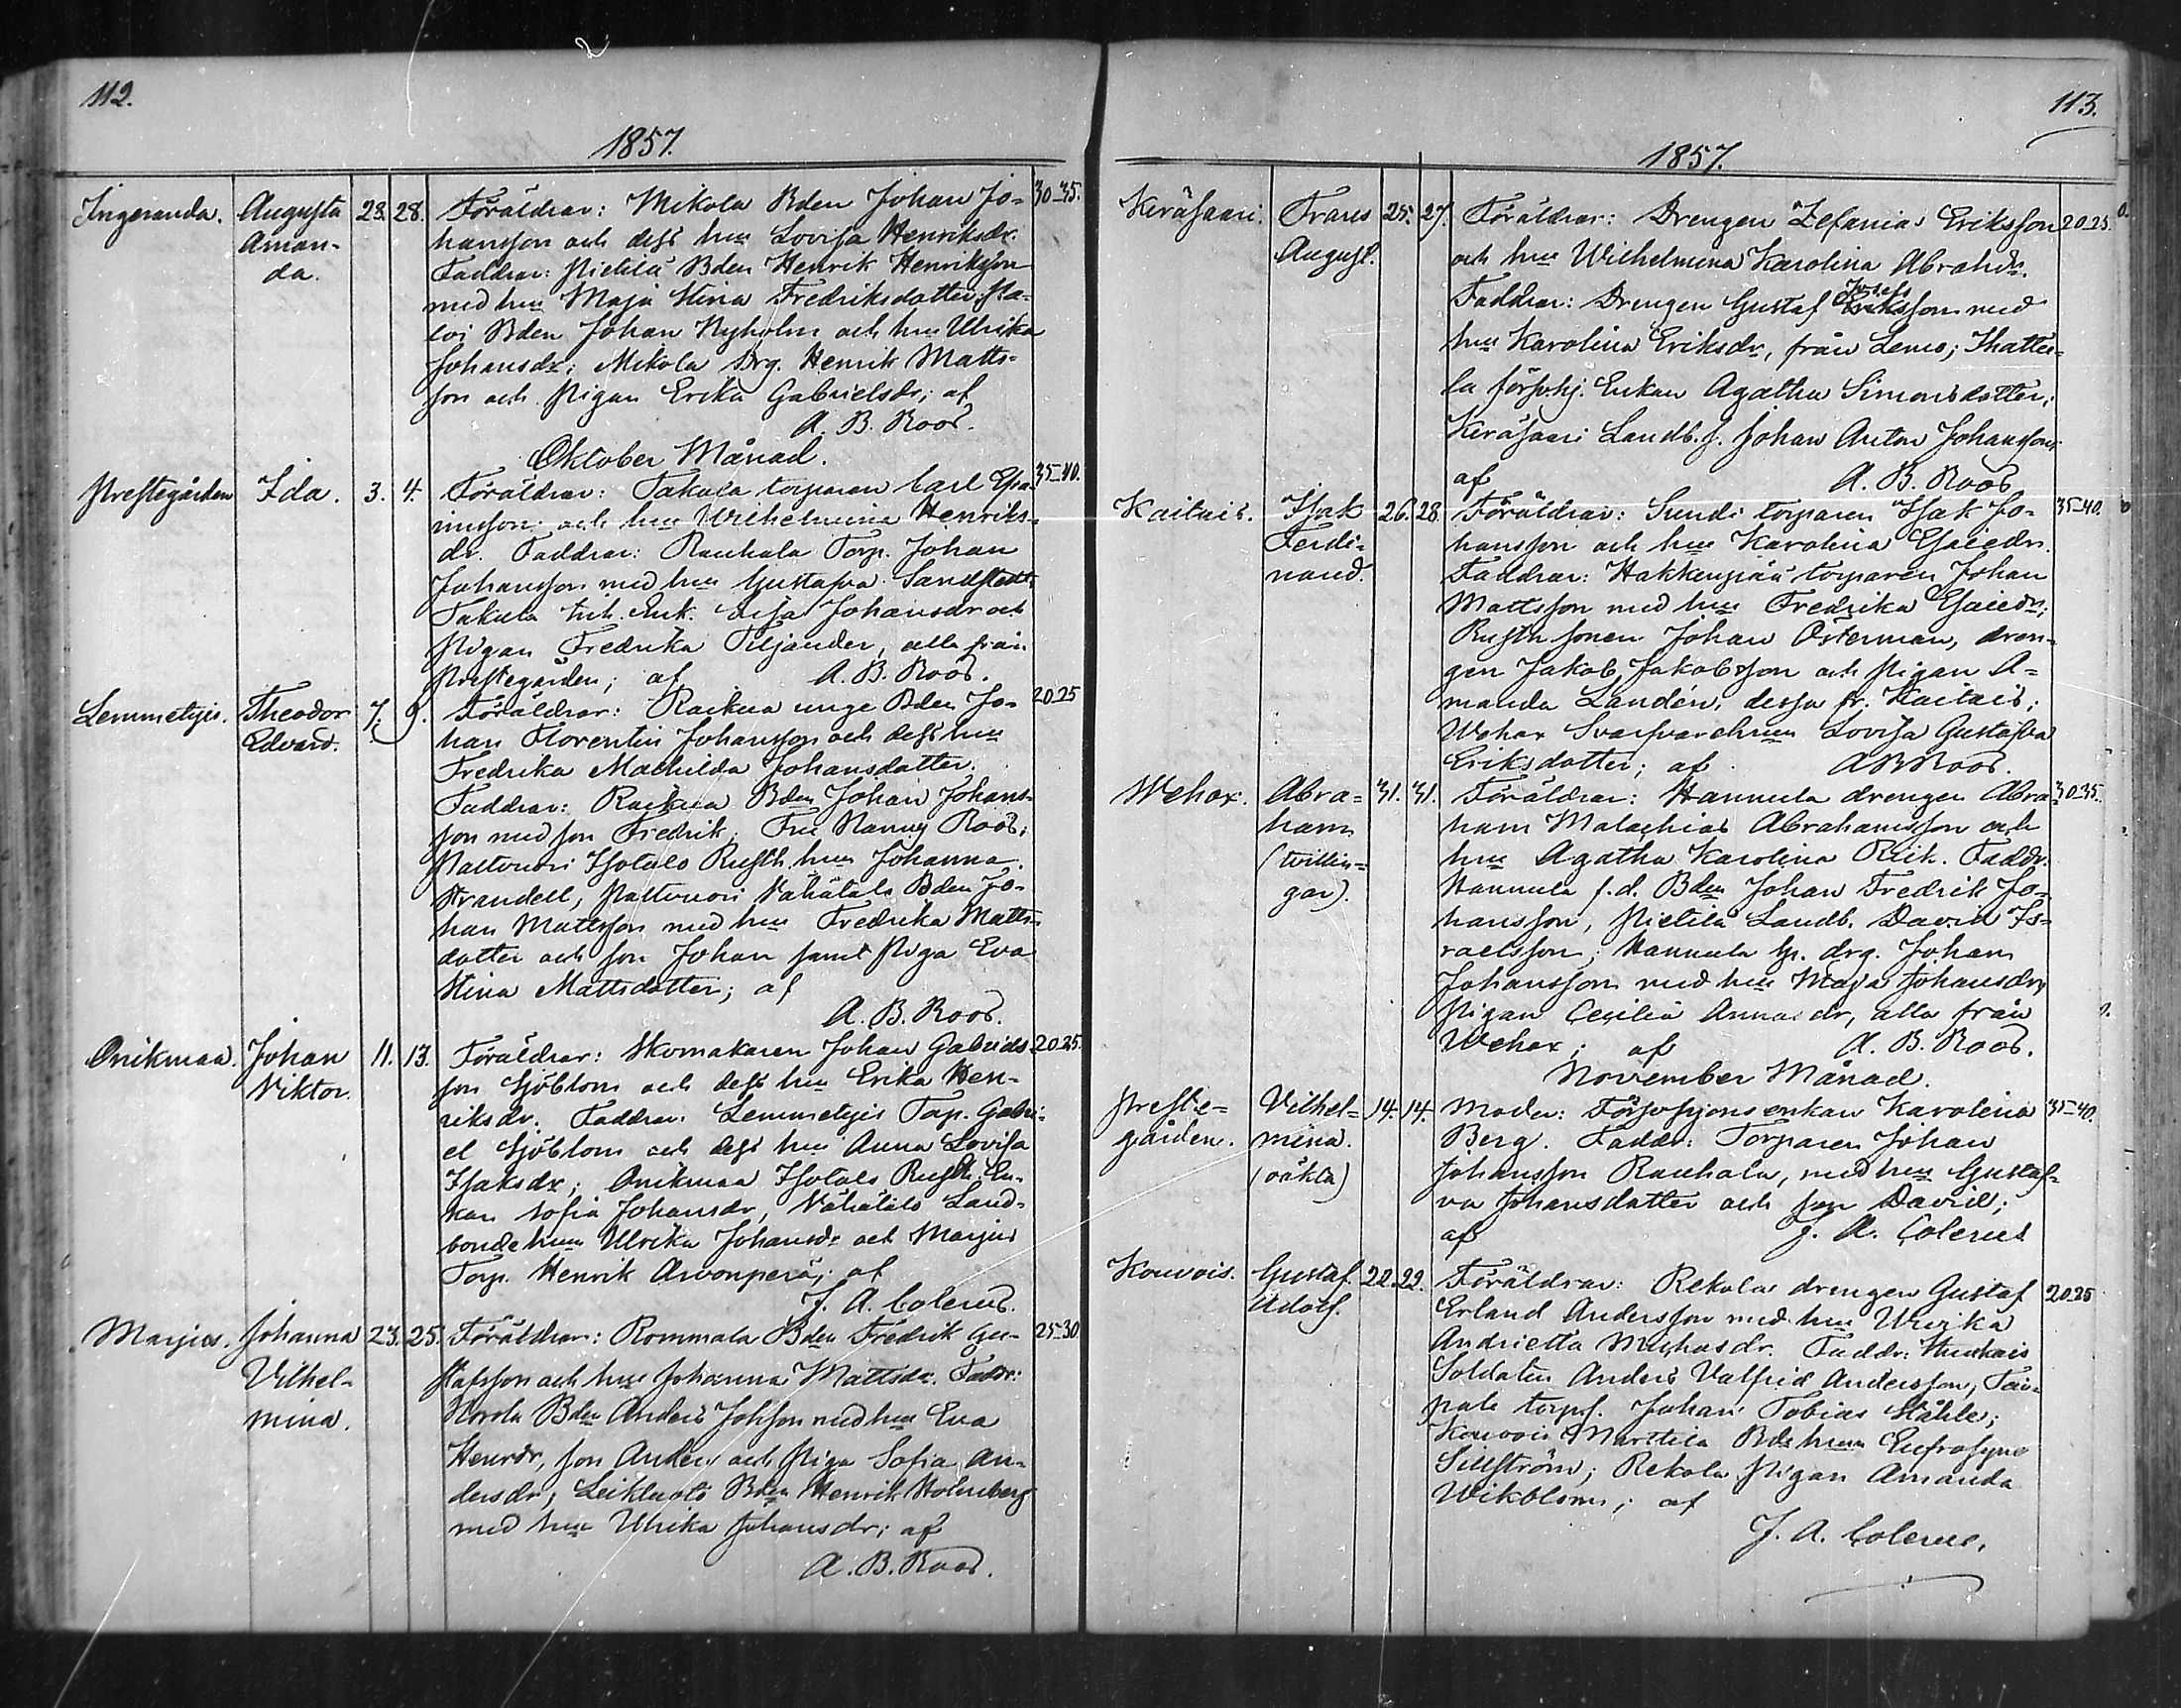 112.
1857.
Ingeranda. Augusta 23. 28. Föräldrar: Mikola Bden Johan Jo- 30-35.
Aman- hansson och dess hru Lovisa Henriksdr.
da. Faddrar: Pietilä Bden Henrik Henriksson
med hru Maja Stina Fredriksdotter;
Bden Johan Nyholm och hru Ulrika
Johansdr; Mikola Drg. Henrik Matts-
son och Pigan Erika Gabrielsdr; af
A. B. Roos.
Oktober Månad.
Prestegården Ida. 3. 4. Föräldrar: Takala torparen Carl 35-40.
och hru Wilhelmina Henriks-
dr. Faddrar: Rauhala Torp. Johan
Johansson med hru Gustafva Sandstedt
Takala Enk. Johansdr och
Pigan Fredrika Tiljander, alla från
Prestegården; af A. B. Roos.
Lemmetyis. Theodor 7. 9. Föräldrar: Raikua unge Bden Jo- 20-25
Edvard. han Florentin Johansson och dess hru
Fredrika Mathilda Johansdotter.
Faddrar: Raikua Bden Johan Johans-
son med son Fredrik; Nanny Roos;
Isotalo Rusth. hru Johanna
Strandell, Vähätalo Bden Jo-
han Mattsson med hru Fredrika Matts-
dotter och son Johan samt Piga Eva
Stina Mattsdotter; af
A. B. Roos.
Onikmaa. Johan 11. 13. Föräldrar: Skomakaren Johan Gabriels- 20-25.
Viktor. son Sjöblom och dess hru Erika Hen-
riksdr. Faddrar: Lemmetyis Torp. Gabri-
el Sjöblom och dess hru Anna Lovisa
Isaksdr; Onikmaa Isotalo Rusth. En-
kan Sofia Johansdr, Vähätalo Land-
bonde hru Ulrika Johansdr och Marjus
Torp. Henrik Arvonperä; af
J. A. Colerus.
Marjus. Johanna 23. 25. Föräldrar: Rommala Bden Fredrik Gu- 25-30
Vilhel- stafsson och hru Johanna Mattsdr. Faddr:
mina. Bden Anders Johsson med hru Eva
Henrdr, son Anders och Piga Sofia An-
dersdr, Leikluoto Bden Henrik Holmberg
med hru Ulrika Johansdr; af
A. B. Roos.
113.
1857.
Keräsaari. Frans 25. 27. Föräldrar: Drengen Zefanias Eriksson 20-25.
August. och hru Wilhelmina Karolina Abrahdr.
Josefs
Faddrar: Drengen Gustaf Eriksson med
hru Karolina Eriksdr, från Lemo;
Enkan Agatha Simonsdotter;
Keräsaari Landb. s. Johan Anton Johansson;
af A. B. Roos
Kaitais. Isak 26. 28. Föräldrar: Sundi torparen Isak Jo- 35-40.
Ferdi- hansson och hru Karolina Esaiedr.
nand. Faddrar: Hakkenpää torparen Johan
Mattsson med hru Fredrika Esaiedr;
Rusth. sonen Johan Österman, dren-
gen Jakob Jakobsson och Pigan A-
manda Landén, dessa fr. Kaitais;
Wehax Svarfvare hrun Lovisa Gustafva
Eriksdotter; af A B Roos.
Wehax. Abra- 31. 31. Föräldrar: Hannula drengen Abra- 30-35.
ham Malachias Abrahamsson och
(tvillin- hru Agatha Karolina Faddr.
gar). Hannula f.d. Bden Johan Fredrik Jo-
hansson, Pietilä Landb. David Is-
raelsson; Hannula drg. Johan
Johansson med hru Maja Johansdr,
Pigan Cecilia Annasdr, alla från
Wehax; af A. B. Roos.
November Månad.
Preste- Vilhel- 14. 14. Moder: Försvpions enkan Karolina 35-40.
gården. mina. Berg. Faddr: Torparen Johan
(oäkta) Johansson Rauhala, med hru Gustaf-
va Johansdotter och son David;
af J. A. Colerus
Kouvois. Gustaf 22. 22. Föräldrar: Rekola drengen Gustaf 20-25
Adolf. Erland Andersson med hru Ulrika
Andrietta Faddr:
Soldaten Anders Valfrid Andersson,
torps. Johan Tobias Ståhle;
Kouvois Marttila Bde hrun Eufrosyne
Sillström; Rekola Pigan Amanda
Wikblom; af
J. A. Colerus.